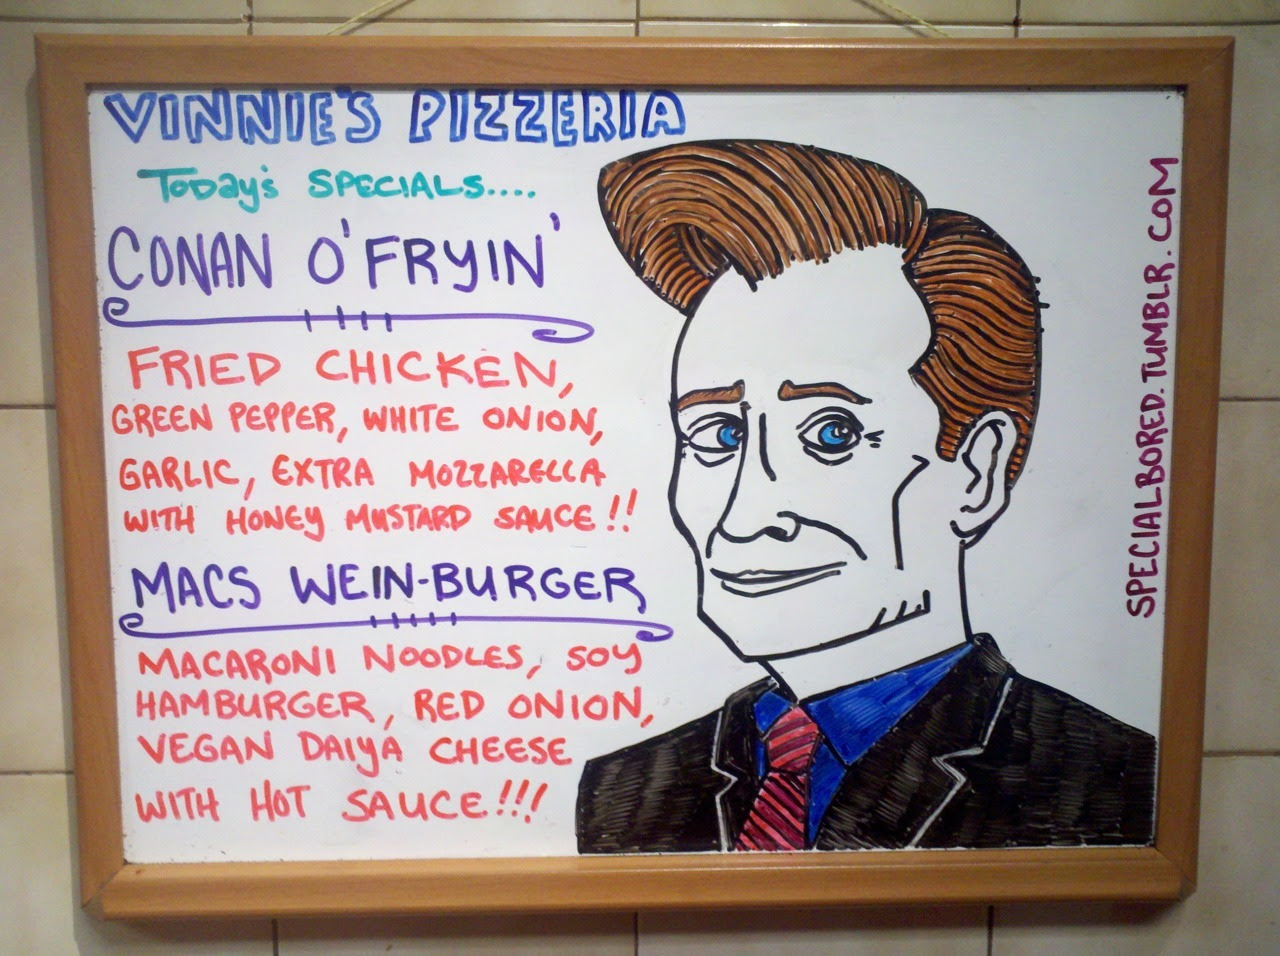 VINNIE'S PIZZERIA
Today's SPECIALS....
CONAN O'FRYIN'
FRIED CHICKEN,
GREEN PEPPER, WHITE ONION,
GARLIC, EXTRA MOZZARELLA
WITH HONEY MUSTARD SAUCE!!
MACS WEIN-BURGER
MACARONI NOODLES, SOY
HAMBURGER, RED ONION,
VEGAN DAIYA CHEESE
WITH HOT SAUCE!!!
SPECIALBORED.TUMBLR.COM